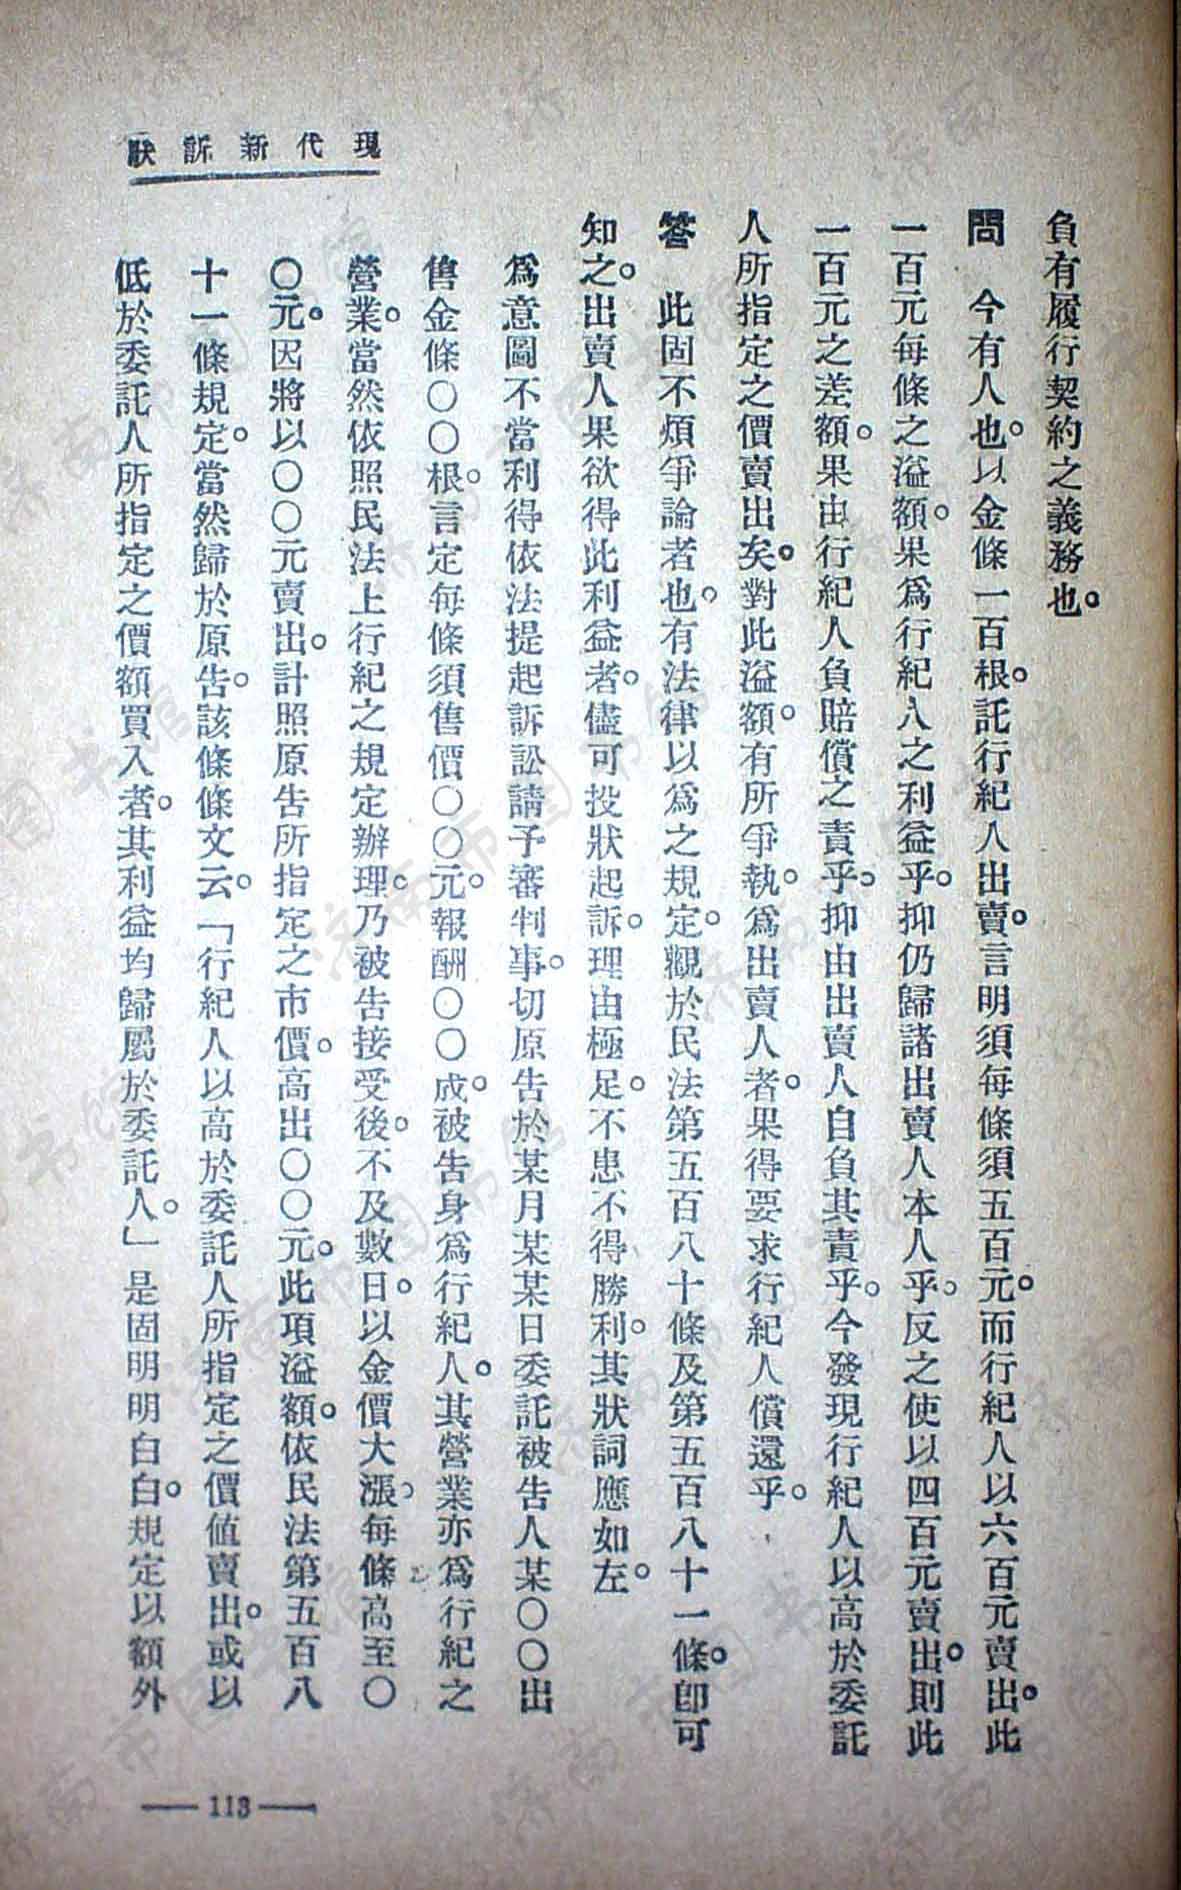 現代新訴狀
負有履行契約之義務也。
問　今有人也。以金條一百根。託行紀人出賣。言明須每條須五百元。而行紀人以六百元賣出。此
一百元每條之溢額。果爲行紀人之利益乎。抑仍歸諸出賣人本人乎。反之使以四百元賣出。則此
一百元之差額。果由行紀人負賠償之責乎。抑由出賣人自負其責乎。今發現行紀人以高於委託
人所指定之價賣出矣。對此溢額。有所爭執。爲出賣人者。果得要求行紀人償還乎。
答　此固不煩爭論者也。有法律以爲之規定。觀於民法第五百八十條及第五百八十一條。卽可
知之。出賣人果欲得此利益者。儘可投狀起訴。理由極足。不患不得勝利。其狀詞應如左。
爲意圖不當利得依法提起訴訟請予審判事。切原告於某月某某日委託被告人某〇〇出
售金條〇〇根。言定每條須售價〇〇元。報酬〇〇成。被告身爲行紀人。其營業亦爲行紀之
營業。當然依照民法上行紀之規定辦理。乃被告接受後。不及數日。以金價大漲。每條高至〇
〇元。因將以〇〇元賣出。計照原告所指定之市價。高出〇〇元。此項溢額。依民法第五百八
十一條規定。當然歸於原告。該條條文云。「行紀人以高於委託人所指定之價値賣出。或以
低於委託人所指定之價額買入者。其利益均歸屬於委託人。」是固明明白白。規定以額外
—113—